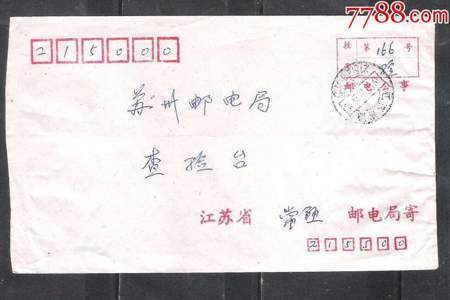 7788.com
215000
挂 第 166 号
邮 电 公 事
苏州邮电局
查验台
江苏省 常熟 邮电局寄
215500